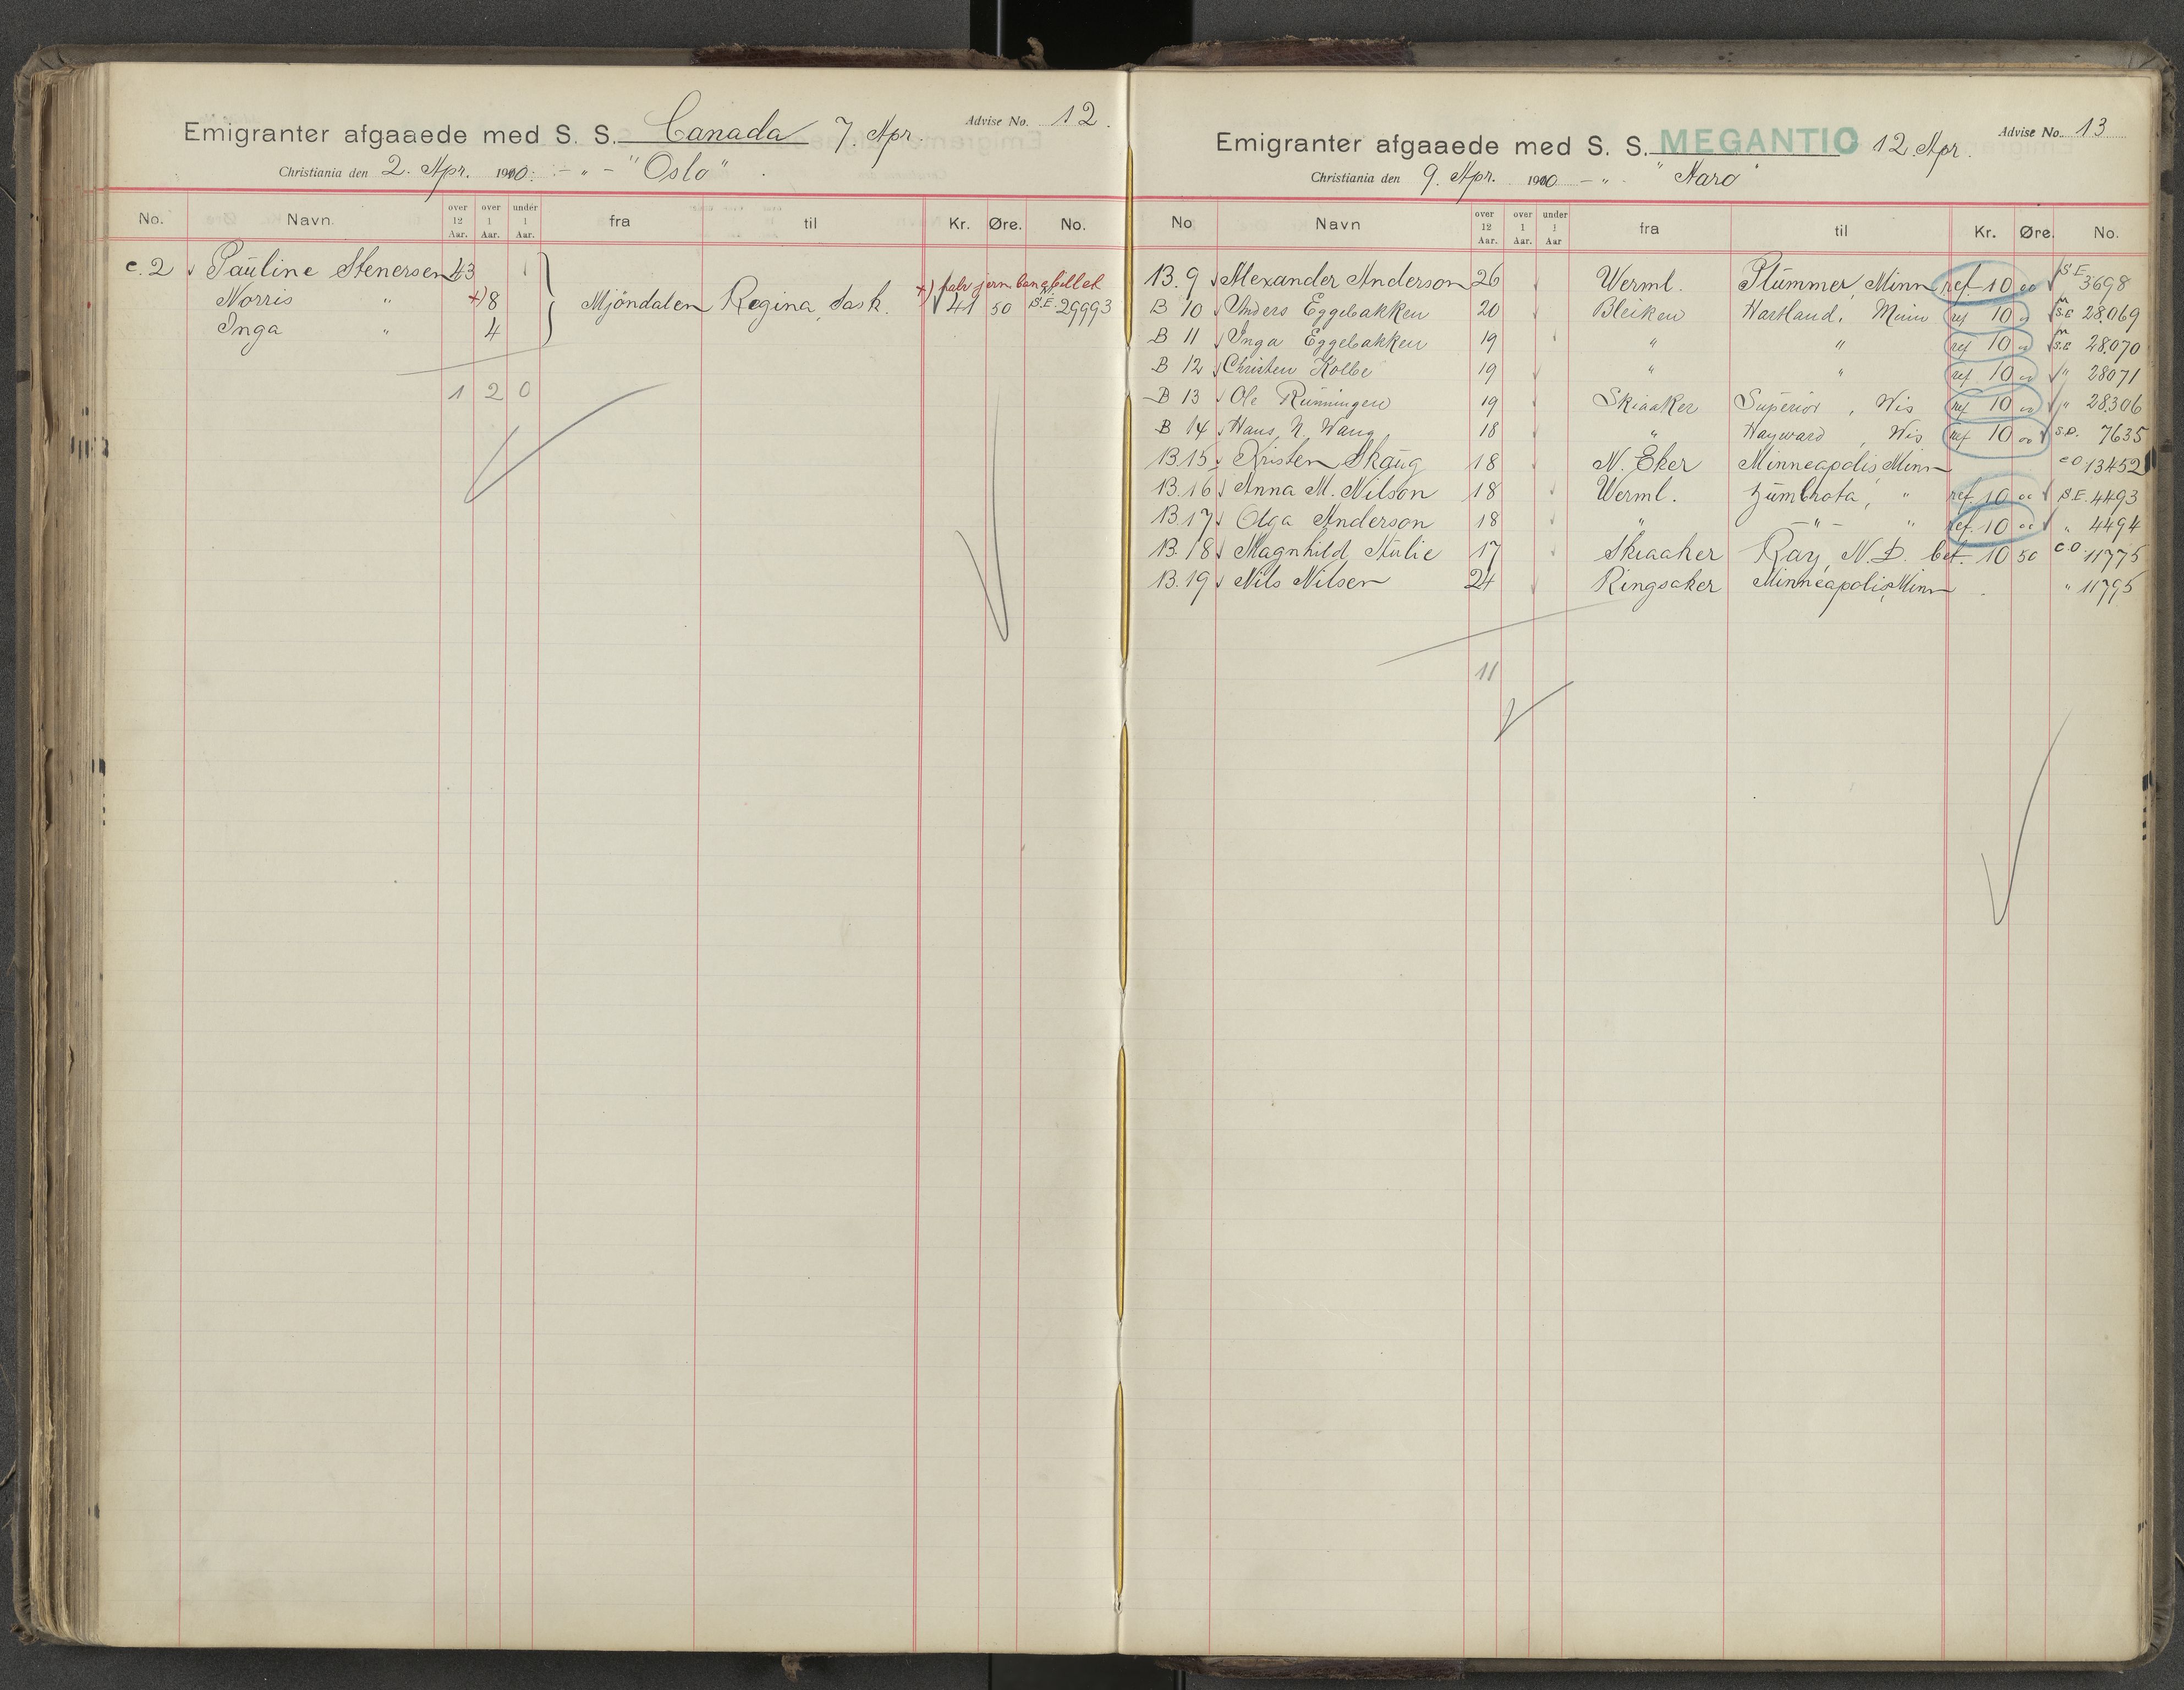 Emigranter afgaaede med S. S. Canada 7. Apr. Advise No. 12.
Christiania den 2. Apr. 1910. - " - "Oslo"
No. Navn. over 12 Aar. over 1 Aar. under 1 Aar. fra til Kr. Øre. No.
c. 2 Pauline Stenersen 43
+) halv jernbanebillet
Norris " +) 8 Mjöndalen Regina, Sask. 41 50 S.E. 29993
Inga " 4
1 2 0
Emigranter afgaaede med S. S. MEGANTIC 12. Apr. Advise No. 13
Christiania den 9. Apr. 1910 - " - "Aaro"
No Navn over 12 Aar. over 1 Aar. under 1 Aar fra til Kr. Øre. No.
B. 9 Alexander Anderson 26 Werml. Plummer, Minn ref. 10 00 S.E. 3698
B 10 Anders Eggebakken 20 Bleiken Hartland, Minn ref 10 00 S.E 28069
B 11 Inga Eggebakken 19 " " ref 10 00 S.E 28070
B 12 Christen Kolbe 19 " " ref. 10 00 " 28071
B 13 Ole Runningen 19 Skiaaker Superior, Wis ref 10 00 " 28306
B 14 Hans N. Wang 18 " Hayward, Wis ref 10 00 S.O. 7635
B. 15 Kristen Skaug 18 N. Eker Minneapolis Minn c O 13452
B. 16 Anna M. Nilson 18 Werml. Zumbrota, " ref. 10 00 S.E. 4493
B. 17 Olga Anderson 18 " - " - " ref. 10 00 " 4494
B. 18 Magnhild Stulie 17 Skiaaker Ray, N. D. bet. 10 50 c O 11775
B. 19 Nils Nilsen 24 Ringsaker Minneapolis, Minn " 11795
11